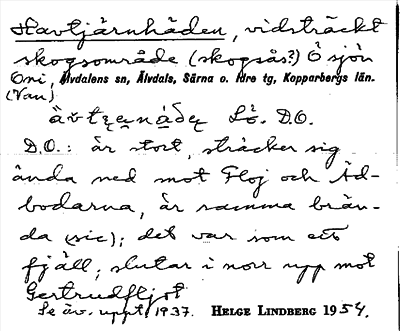 Havtjärnhäden, vidsträckt
skogsområde (skogsås?) Ö sjön
Öni, Älvdalens sn, Älvdals, Särna o. Idre tg, Kopparbergs län.
(Van)
Lö. D.O.
D.O.: är stort, sträcker sig
ända ned mot Floj och Äd-
bodarna, är samma brän-
da (sic); det var som ett
fjäll; slutar i norr upp mot
Gertrudfljot
Se äv. uppt. 1937. HELGE LINDBERG 1954.